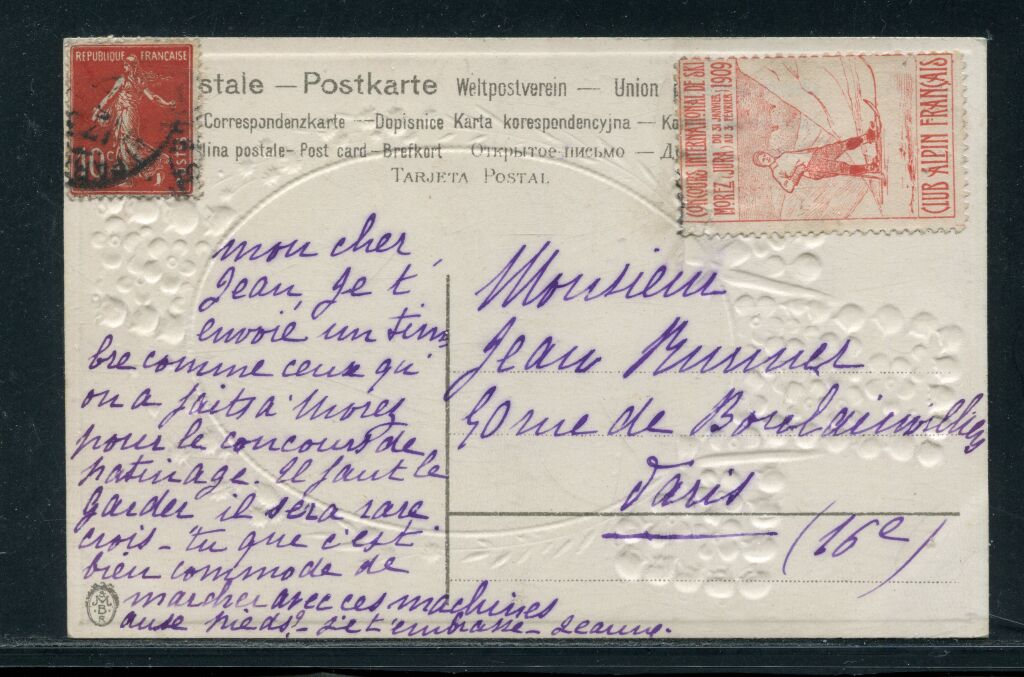 REPUBLIQUE FRANÇAISE
10c POSTES
stale — Postkarte Weltpostverein — Union
Correspondenzkarte — Dopisnice Karta korespondencyjna —
lina postale - Post card - Brefkort Открытое письмо —
TARJETA POSTAL
CONCOURS INTERNATIONAL DE SKI
MOREZ (JURA) DU 31 JANVIER AU 3 FEVRIER 1909
CLUB ALPIN FRANÇAIS
mon cher
Jean, Je t
envoie un tim
bre comme ceux qu
on a faits à Morez
pour le concours de
patinage. Il faut le
garder il sera rare
crois-tu que c'est
bien commode de
marcher avec ces machines
aux pieds? - Je t'embrasse - Jeanne.
Monsieur
Jean Brunner
50 rue de Boulainvilliers
Paris
(16e)